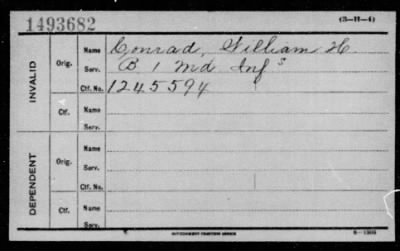 1493682
(3-H-4)
INVALID
Orig.
Name Conrad, William H
Serv. B 1 Md Inf
Ctf. No. 1245594
Ctf.
Name
Serv.
DEPENDENT
Orig.
Name
Serv.
Ctf. No.
Ctf.
Name
Serv.
GOVERNMENT PRINTING OFFICE